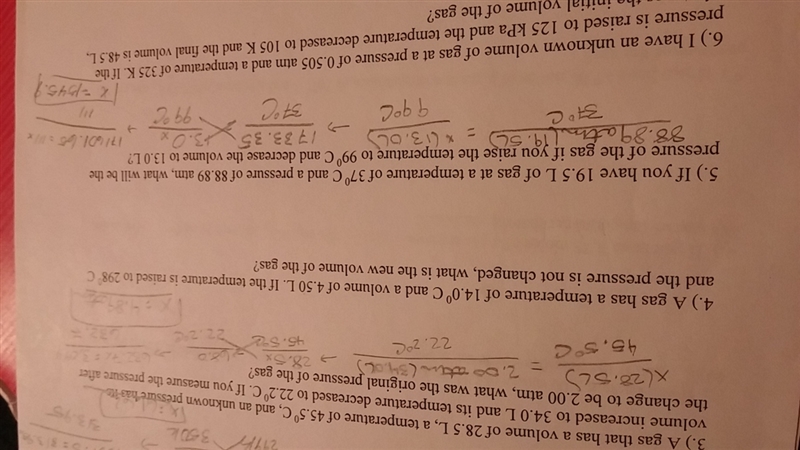 3.) A gas that has a volume of 28.5 L, a temperature of 45.5⁰C, and an unknown pressure has its
volume increased to 34.0 L and its temperature decreased to 22.2⁰C. If you measure the pressure after
the change to be 2.00 atm, what was the original pressure of the gas?
x(28.5L) = 2.00 atm(34.0L) → 28.5x
45.5°C 22.2°C 45.5°C 22.2°C
4.) A gas has a temperature of 14.0⁰C and a volume of 4.50 L. If the temperature is raised to 298°C
and the pressure is not changed, what is the new volume of the gas?
5.) If you have 19.5 L of gas at a temperature of 37⁰C and a pressure of 88.89 atm, what will be the
pressure of the gas if you raise the temperature to 99⁰C and decrease the volume to 13.0L?
88.89 atm(19.5L) = x(13.0L) → 1733.35 13.0x →
37°C 99°C 37°C 99°C 111
6.) I have an unknown volume of gas at a pressure of 0.505 atm and a temperature of 325 K. If the
pressure is raised to 125 kPa and the temperature decreased to 105 K and the final volume is 48.5 L,
the initial volume of the gas?